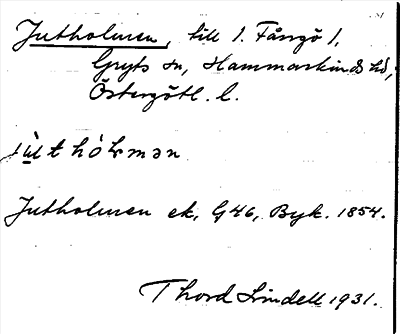 Jutholmen, till 1. Fångö 1,
Gryts sn, Hammarkinds hd,
Östergötl. l.
Jutholmen ek, G46, Byk. 1854.
Thord Lindell 1931.